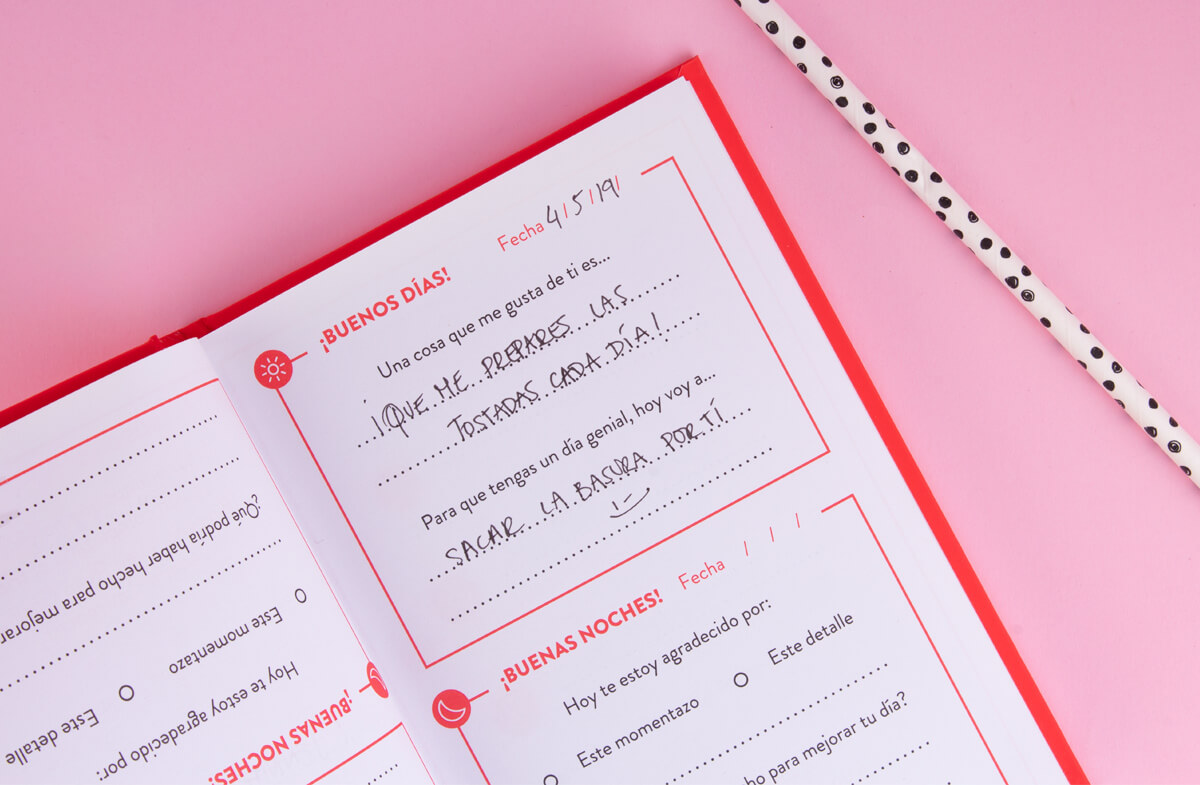 Fecha 4/5/19/
¡BUENOS DÍAS!
Una cosa que me gusta de ti es...
¡QUE ME PREPARES LAS
TOSTADAS CADA DÍA!
Para que tengas un día genial, hoy voy a...
SACAR LA BASURA POR TÍ
Fecha / / /
¡BUENAS NOCHES!
Hoy te estoy agradecido por:
Este momentazo
Este detalle
ho para mejorar tu día?
¡BUENAS NOCHES!
Hoy te estoy agradecido por:
Este momentazo
Este detalle
¿Qué podría haber hecho para mejorar